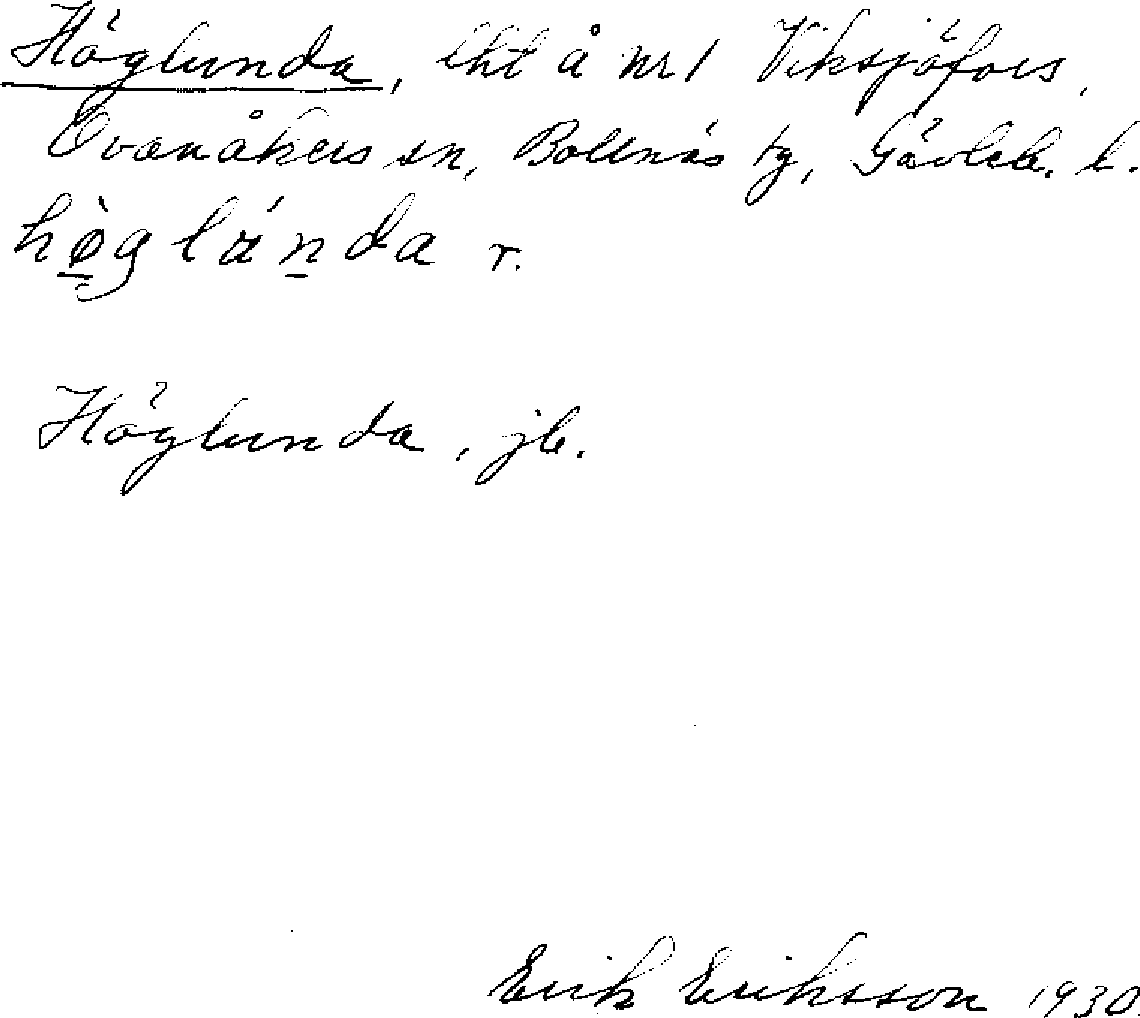 Höglunda, lht å nr 1 Viksjöfors,
Ovanåkers sn, Bollnäs tg, Gävleb. l.
hø̀glánda r.
Höglunda, jb.
Erik Eriksson 1930.